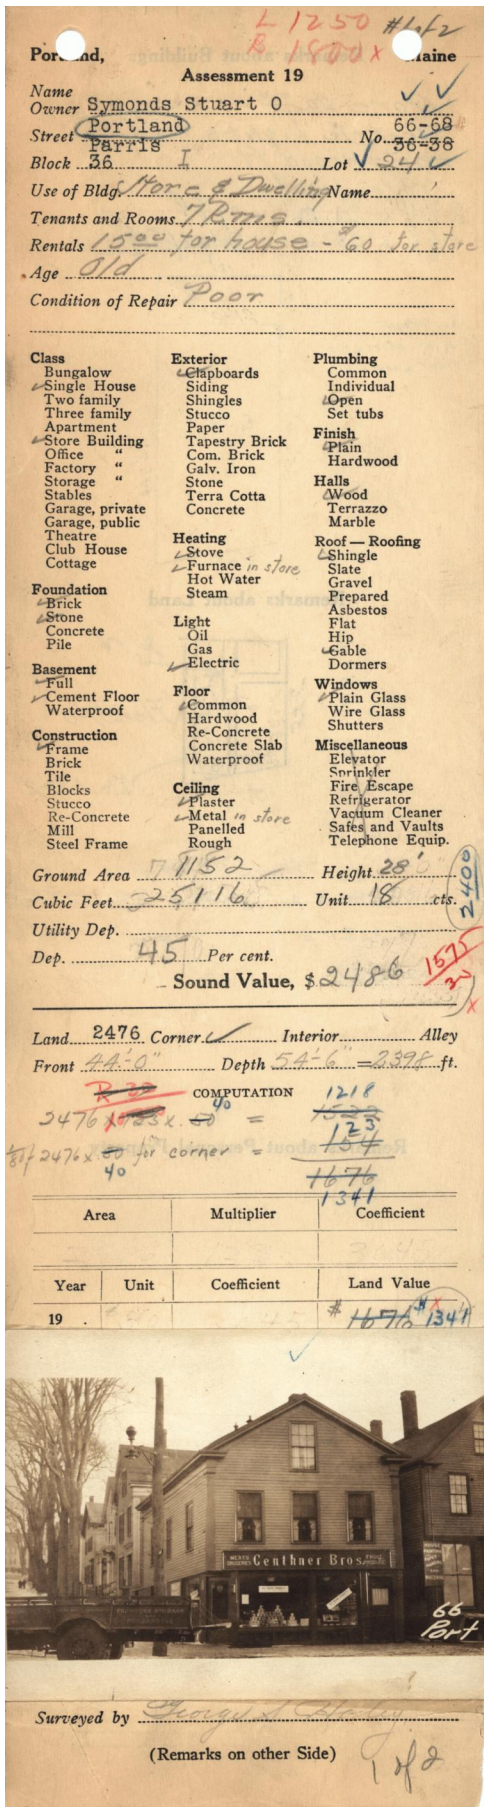 L 1250 # 1 of 2
B 1800 x
Portland, Maine
Assessment 19
Name
Owner Symonds Stuart O
Street Portland No. 66-68
Parris 36-38
Block 36 I Lot 24
Use of Bldg. Store & Dwelling Name
Tenants and Rooms 7 Rms.
Rentals 15 00 for house - $60 for store
Age Old
Condition of Repair Poor
Class
Bungalow
Single House
Two family
Three family
Apartment
Store Building
Office "
Factory "
Storage "
Stables
Garage, private
Garage, public
Theatre
Club House
Cottage
Foundation
Brick
Stone
Concrete
Pile
Basement
Full
Cement Floor
Waterproof
Construction
Frame
Brick
Tile
Blocks
Stucco
Re-Concrete
Mill
Steel Frame
Exterior
Clapboards
Siding
Shingles
Stucco
Paper
Tapestry Brick
Com. Brick
Galv. Iron
Stone
Terra Cotta
Concrete
Heating
Stove
Furnace in store
Hot Water
Steam
Light
Oil
Gas
Electric
Floor
Common
Hardwood
Re-Concrete
Concrete Slab
Waterproof
Ceiling
Plaster
Metal in store
Panelled
Rough
Plumbing
Common
Individual
Open
Set tubs
Finish
Plain
Hardwood
Halls
Wood
Terrazzo
Marble
Roof — Roofing
Shingle
Slate
Gravel
Prepared
Asbestos
Flat
Hip
Gable
Dormers
Windows
Plain Glass
Wire Glass
Shutters
Miscellaneous
Elevator
Sprinkler
Fire Escape
Refrigerator
Vacuum Cleaner
Safes and Vaults
Telephone Equip.
Ground Area 1152 Height 28'
Cubic Feet 25116 Unit 18 cts.
2400
Utility Dep.
Dep. 45 Per cent.
Sound Value, $ 2486
1575
Land 2476 Corner ✓ Interior Alley
Front 44'-0" Depth 54'-6" = 2398 ft.
R-30 COMPUTATION 1218
2476 x 123 x 50 40 = 1522
123
of 2476 x 50 for corner = 154
40 1676
1341
Area Multiplier Coefficient
Year Unit Coefficient Land Value
19 # 1676 # 1341
MEATS GROCERIES Genthner Bros.
66
Port
Surveyed by George S.
(Remarks on other Side)
1 of 2